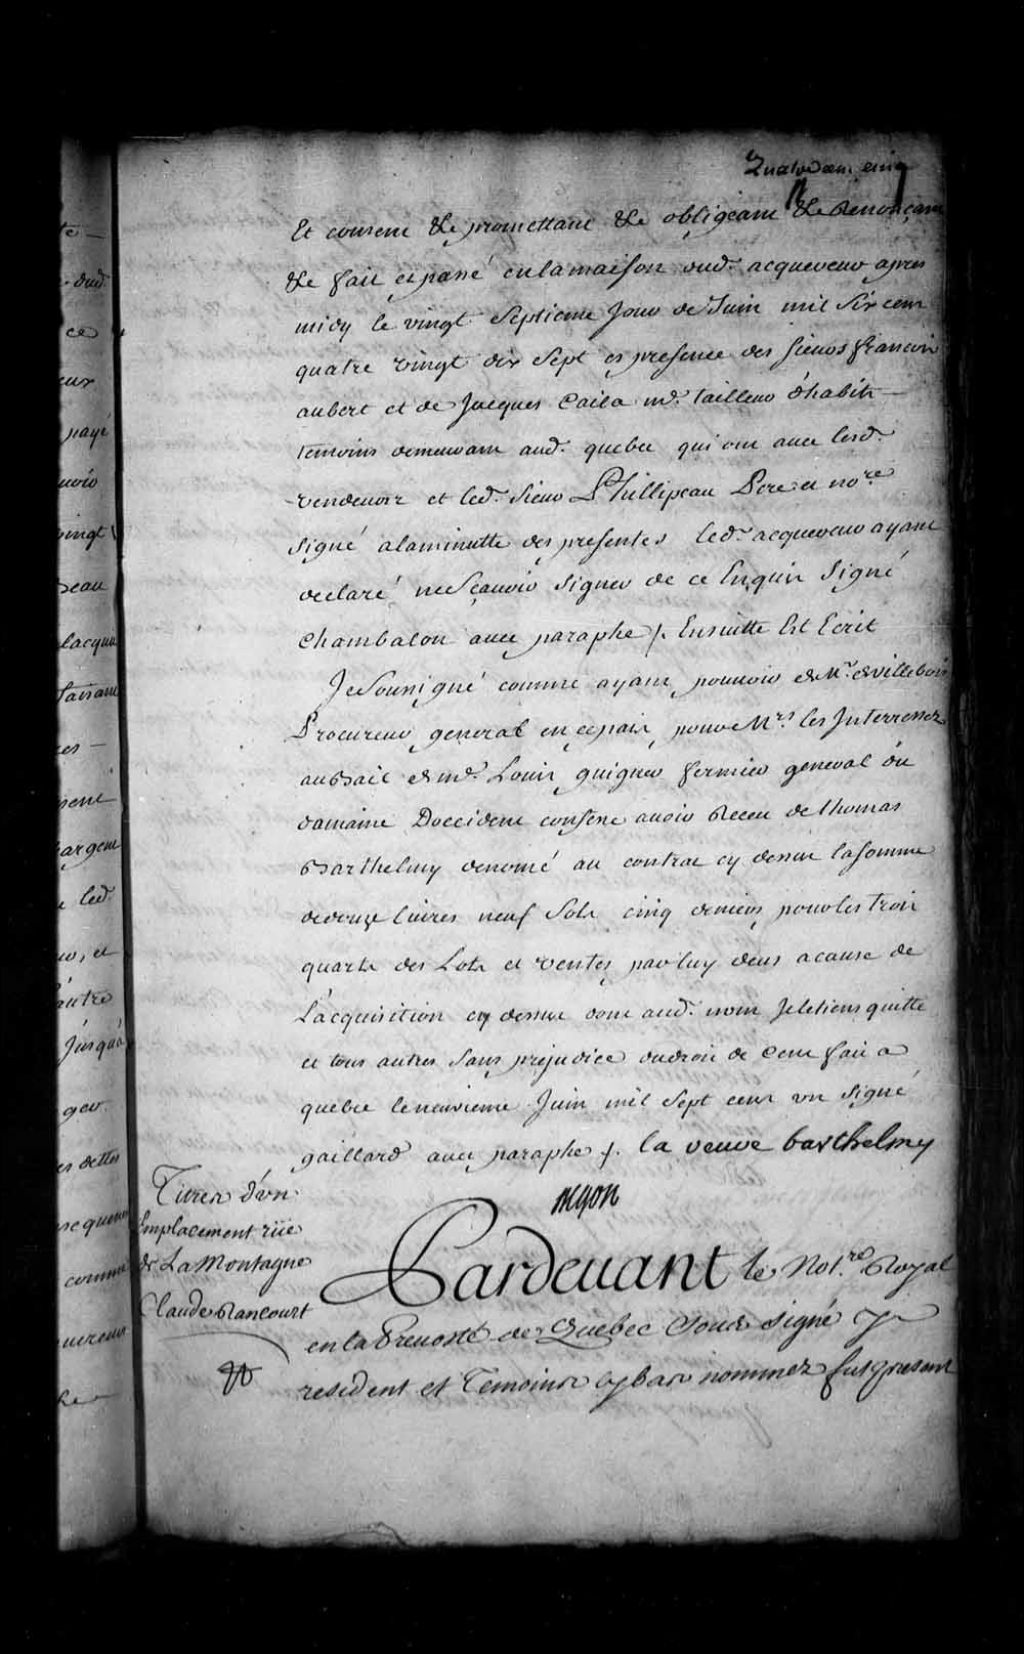 Quatre cent cinq
Et consent &c promettant &c obligeant &c Renonçant
&c fait et passé en la maison dud. acquereur apres
midy le vingt Septieme Jour de Juin mil Six cent
quatre vingt dix Sept es presence des Sieurs françois
aubert et de Jacques Caila md. tailleur d'habits
temoins demeurant aud. quebec qui ont avec lesd.
vendeurs et led. Sieur Phillipeau Pere et nore
signé alaminutte des presentes led. acquereur ayant
declaré ne Sçavoir Signer de ce Enquis Signé
Chambalon avec paraphe /. Ensuitte Est Ecrit
Je Soussigné comme ayant pouvoir de Mr. de villebois
Procureur general en ce païs pour Mrs les Interressez
au Bail de md. Louis guigues fermier general du
domaine Doccident confesse avoir Receu de thomas
Barthelmy denomé au contrat cy dessus la somme
de douze livres neuf Sols cinq deniers pour les trois
quarts des Lots et ventes par luy deus a cause de
L'acquisition cy dessus dont aud. nom Je le tiens quitte
et tous autres Sans prejudice du droit de Cens fait a
quebec le neuvieme Juin mil Sept cent un Signé
gaillard avec paraphe /. la veuve barthelmy
Titres d'un
Emplacement rüe
de La Montagne
Claude Rancourt
Pardevant le Not.re Royal
en la Prevosté de Quebec Sous Signé y
resident et Temoins cy bas nommez fut present